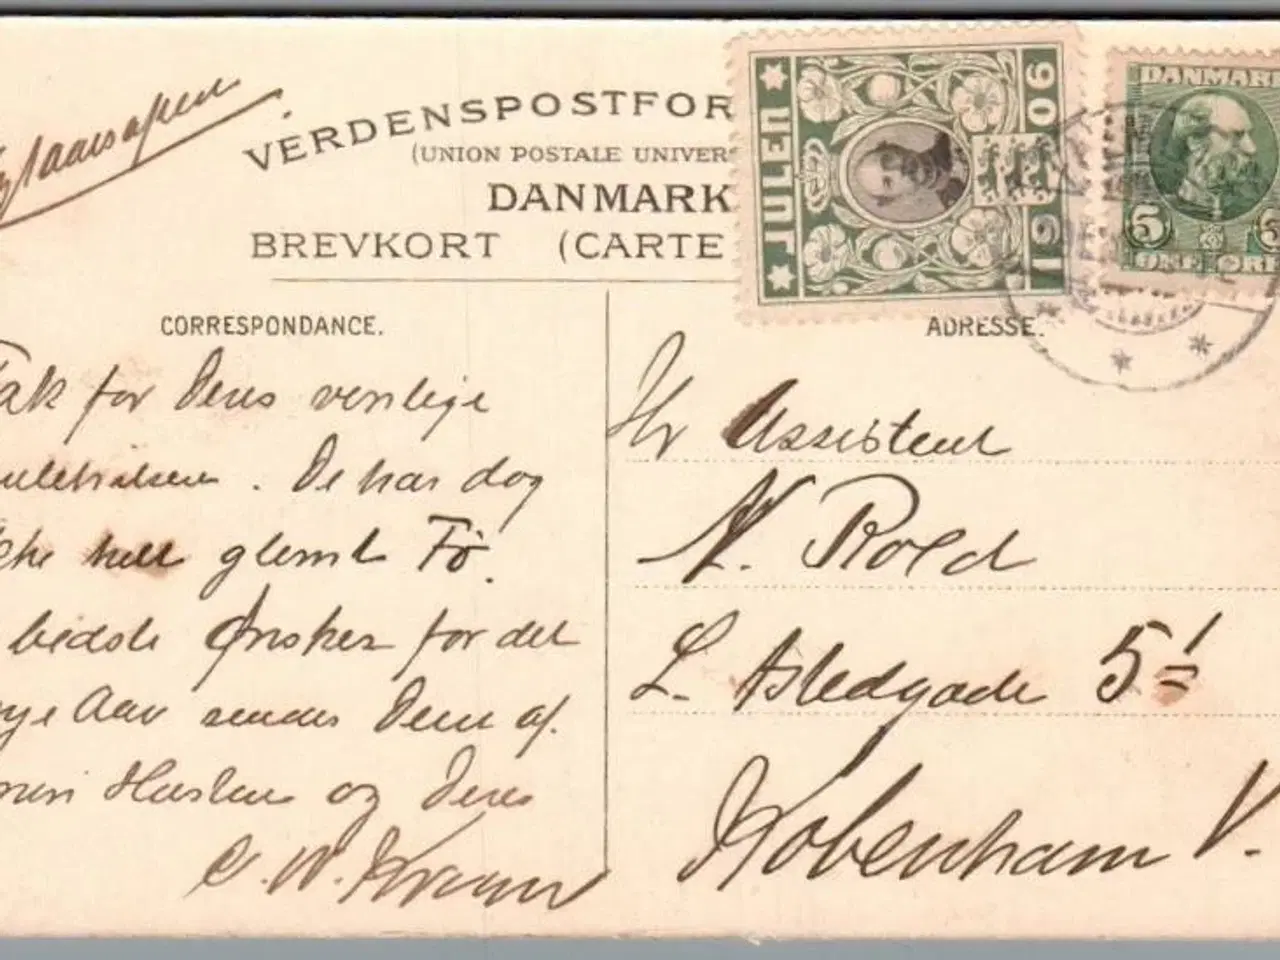 Nytaarsaften
VERDENSPOSTFOR
(UNION POSTALE UNIVERS
DANMARK
BREVKORT (CARTE
JULEN 1906
DANMARK
5 5
ØRE ØRE
CORRESPONDANCE.
ADRESSE.
Tak for Deres venlige
Julehilsen. De har dog
ikke helt glemt Fø.
bedste Ønsker for det
nye Aar sendes Dem af
min Hustru og Deres
C. W. Kramer
Hr Assistent
N. Rold
L. Istedgade 5 1/=
København V.